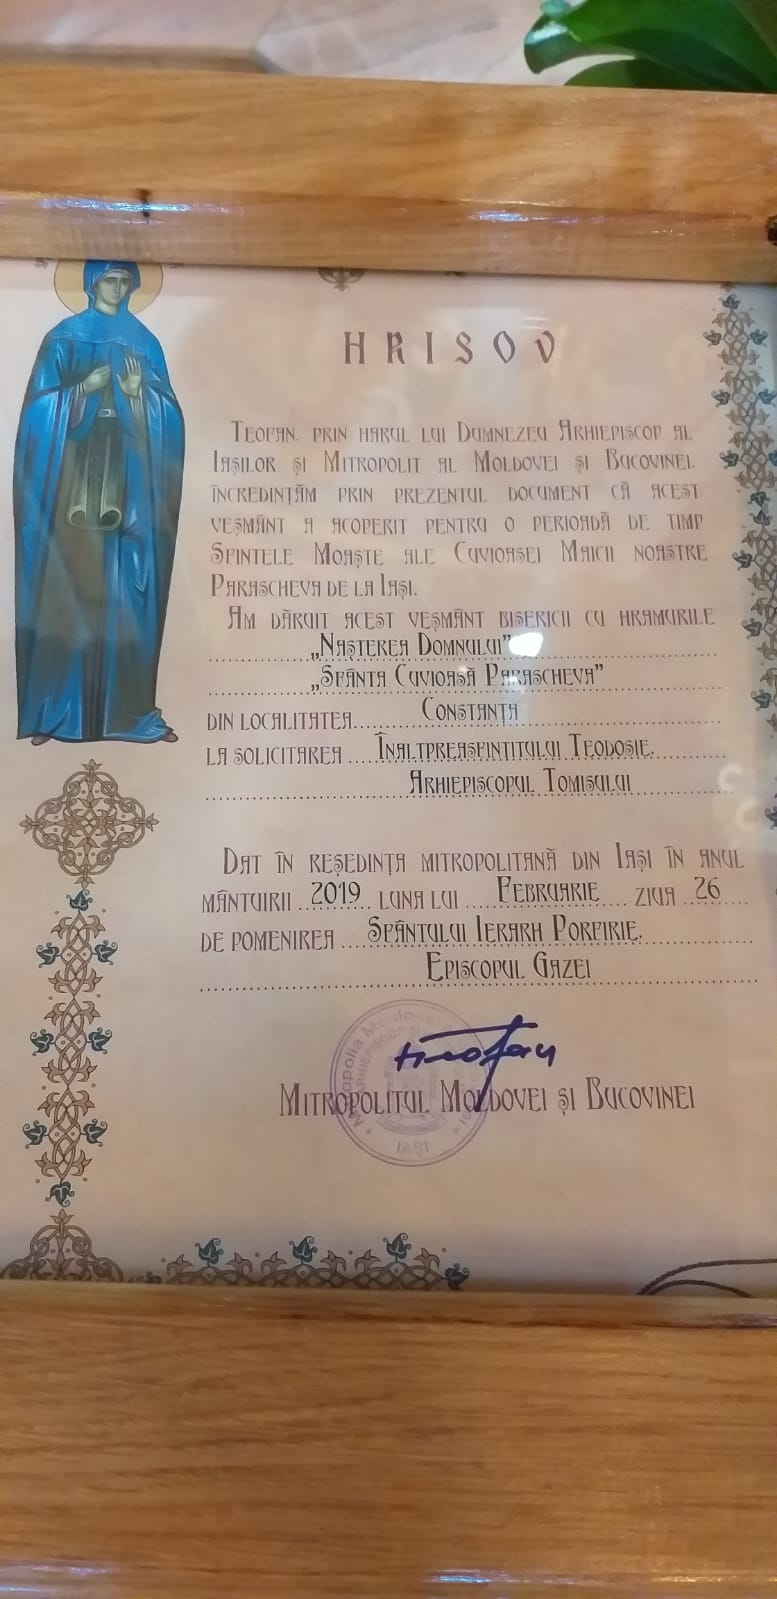 HRISOV
Teofan, prin harul lui Dumnezeu Arhiepiscop al
Iașilor și Mitropolit al Moldovei și Bucovinei,
încredințăm prin prezentul document că acest
veșmânt a acoperit pentru o perioadă de timp
Sfintele Moaște ale Cuvioasei Maicii noastre
Parascheva de la Iași.
Am dăruit acest veșmânt bisericii cu hramurile
„Nașterea Domnului”
„Sfânta Cuvioasă Parascheva”
din localitatea Constanța
la solicitarea Înaltpreasfintitului Teodosie,
Arhiepiscopul Tomisului
Dat în reședința mitropolitană din Iași în anul
mântuirii 2019 luna lui Februarie ziua 26
de pomenirea Sfântului Ierarh Porfirie,
Episcopul Gazei
Teofan
Mitropolitul Moldovei și Bucovinei
Mitropolia Moldovei
IAȘI